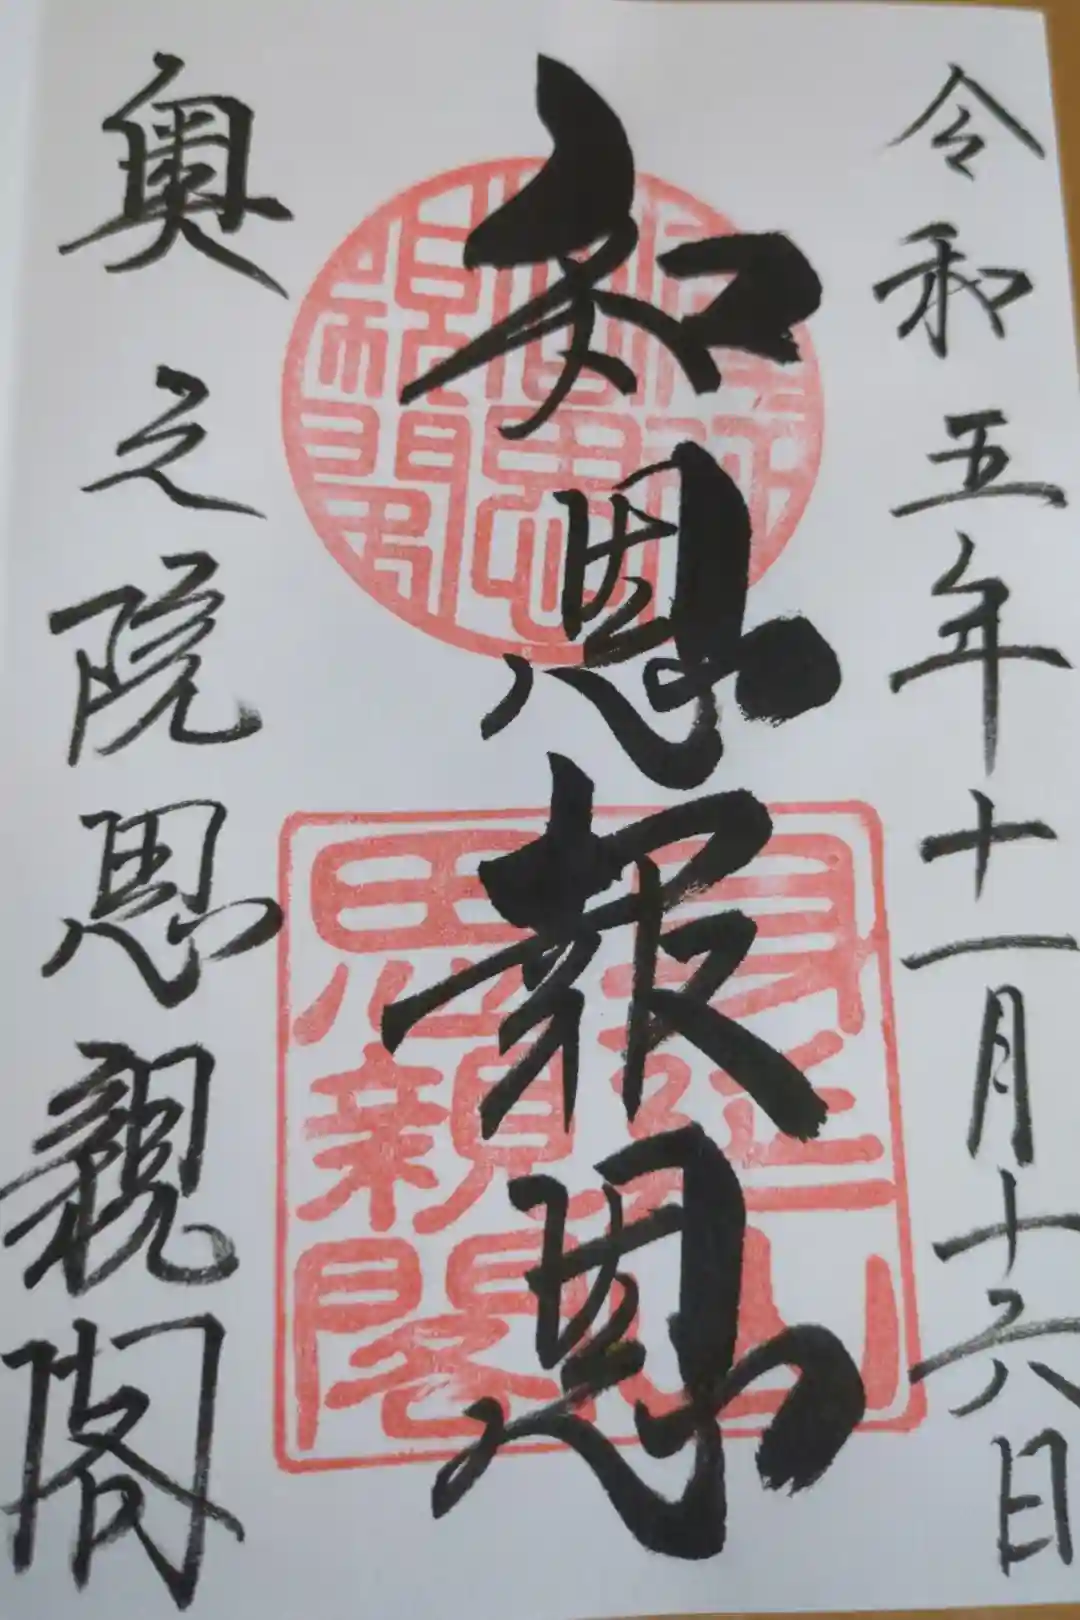 令和五年十一月十六日
知恩報恩
奥之院恩親閣
身延山
思親閣